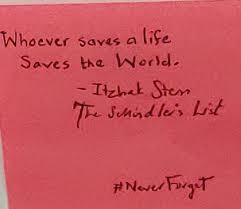 Whoever saves a life
Saves the World.
- Itzhak Stern
The Schindler's List
#NeverForget